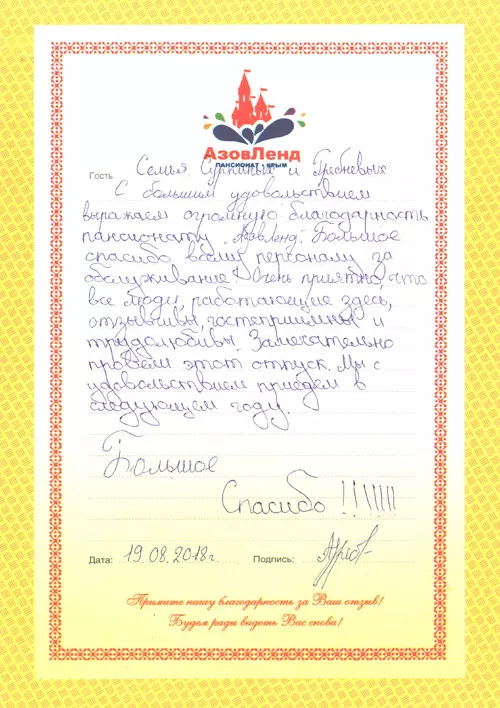 АзовЛенд
ПАНСИОНАТ • КРЫМ
Гость Семья Сурниных и Гребневых
С большим удовольствием
выражаем огромную благодарность
пансионату "АзовЛенд". Большое
спасибо всему персоналу за
обслуживание! Очень приятно, что
все люди, работающие здесь,
отзывчивы, гостеприимны и
трудолюбивы. Замечательно
провели этот отпуск. Мы с
удовольствием приедем в
следующем году.
Большое
Спасибо !!!!!!!
Дата: 19.08.2018г. Подпись:
Примите нашу благодарность за Ваш отзыв!
Будем рады видеть Вас снова!